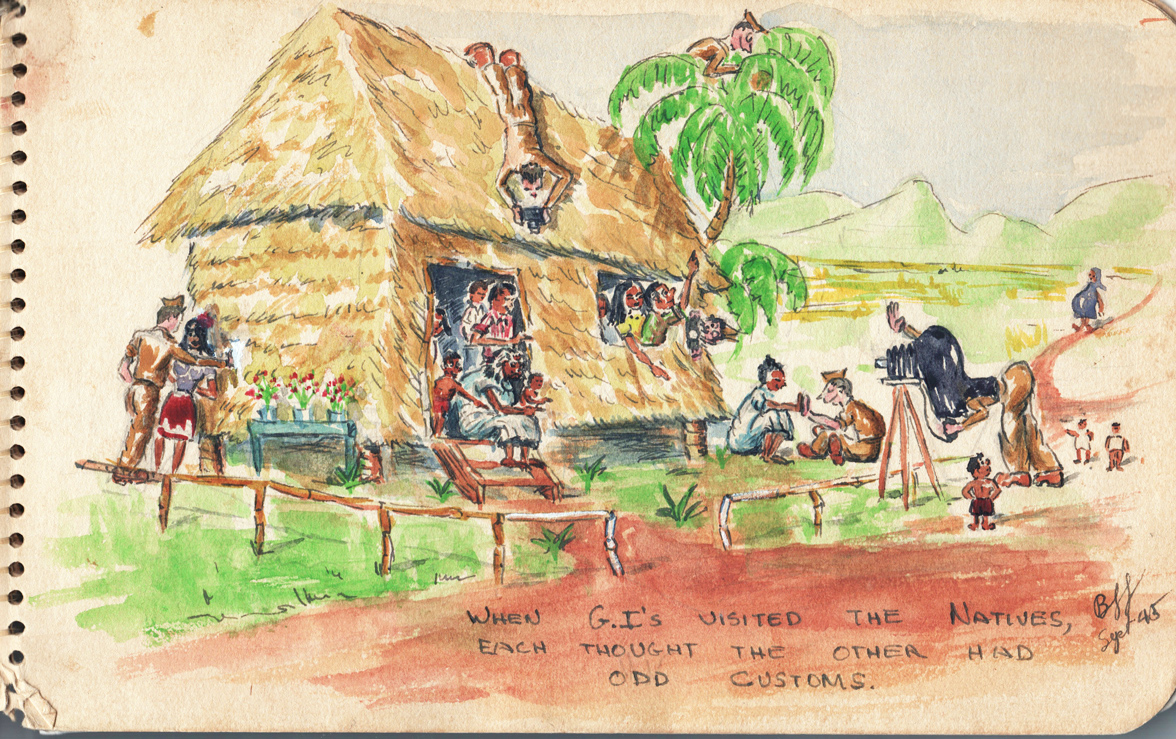 WHEN G.I's VISITED THE NATIVES,
EACH THOUGHT THE OTHER HAD
ODD CUSTOMS.
45